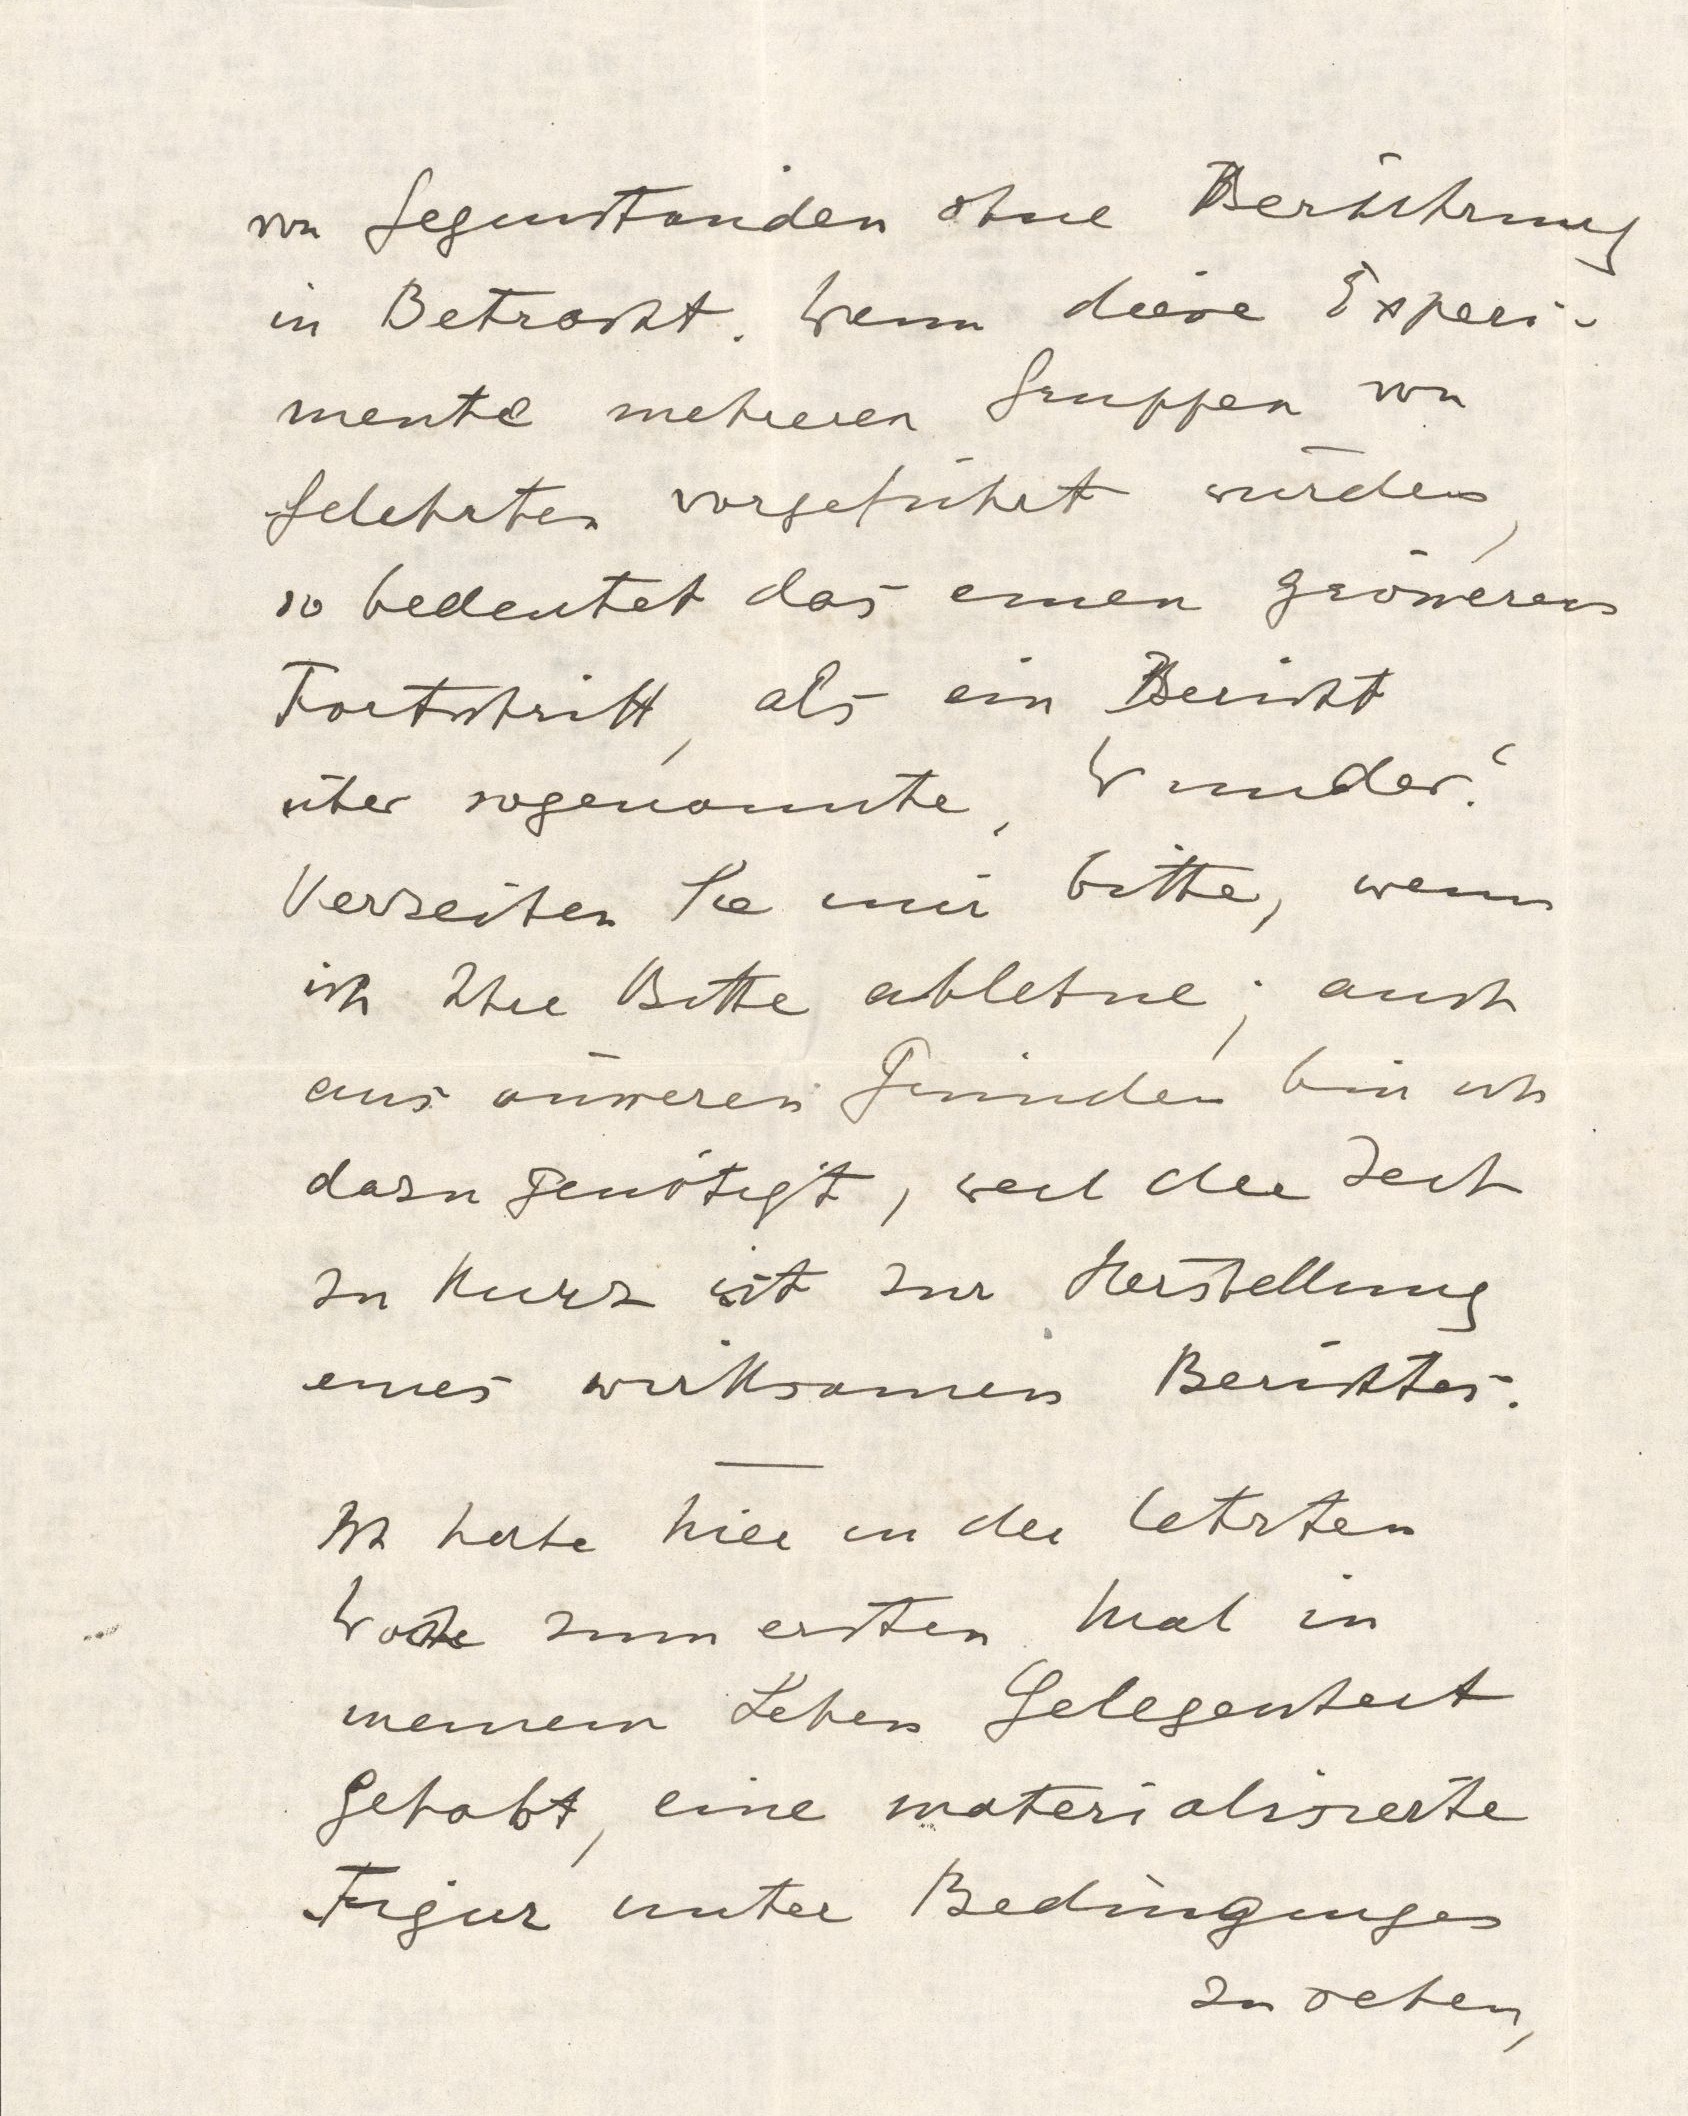 von Gegenständen ohne Berührung
in Betracht. Wenn diese Experi-
mente mehreren Gruppen von
Gelehrten vorgeführt würden,
so bedeutet das einen grösseren
Fortschritt, als ein Bericht
über sogenannte „Wunder“.
Verzeihen Sie mir bitte, wenn
ich Ihre Bitte ablehne; auch
aus äusseren Gründen bin ich
dazu genötigt, weil die Zeit
zu kurz ist zur Herstellung
eines wirksamen Berichtes.
Ich habe hier in der letzten
Woche zum ersten Mal in
meinem Leben Gelegenheit
gehabt, eine materialisierte
Figur unter Bedingungen
zu sehen,